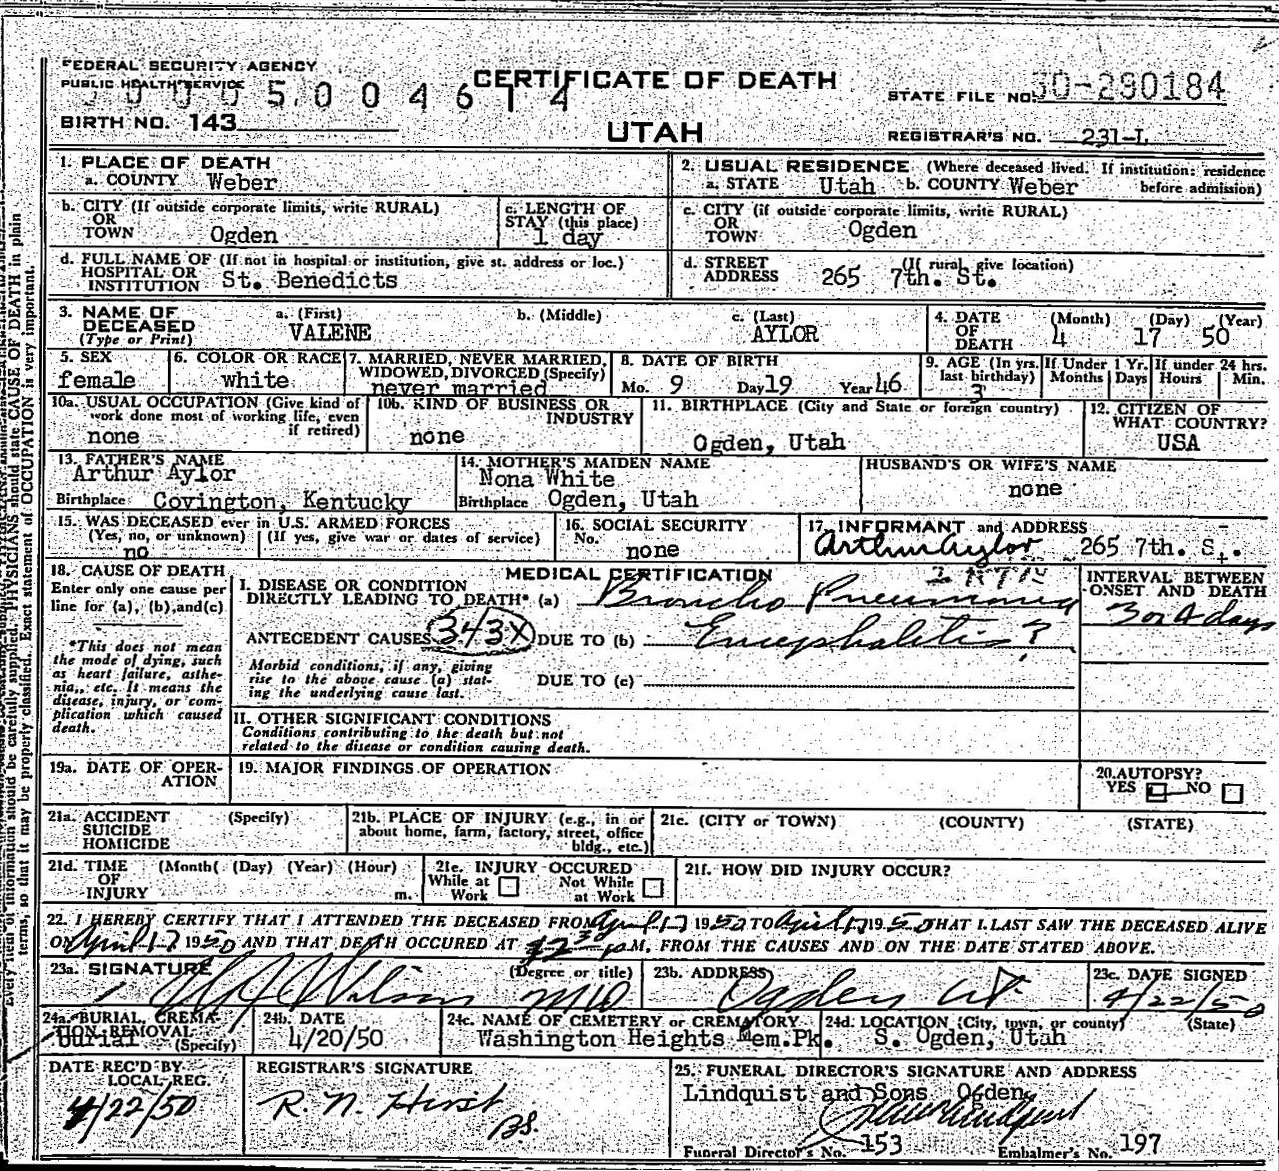 FEDERAL SECURITY AGENCY
PUBLIC HEALTH SERVICE
5 0 0 4 6 1 4
CERTIFICATE OF DEATH
STATE FILE NO. 50-290184
BIRTH NO. 143
UTAH
REGISTRAR'S NO. 231-L
1. PLACE OF DEATH
a. COUNTY Weber
2. USUAL RESIDENCE (Where deceased lived. If institution: residence before admission)
a. STATE Utah b. COUNTY Weber
b. CITY (If outside corporate limits, write RURAL)
OR
TOWN Ogden
c. LENGTH OF
STAY (this place)
1 day
c. CITY (if outside corporate limits, write RURAL)
OR
TOWN Ogden
d. FULL NAME OF (If not in hospital or institution, give st. address or loc.)
HOSPITAL OR
INSTITUTION St. Benedicts
d. STREET (If rural, give location)
ADDRESS 265 7th. St.
3. NAME OF
DECEASED
(Type or Print)
a. (First)
VALENE
b. (Middle)
c. (Last)
AYLOR
4. DATE
OF
DEATH
(Month) (Day) (Year)
4 17 50
5. SEX
female
6. COLOR OR RACE
white
7. MARRIED, NEVER MARRIED,
WIDOWED, DIVORCED (Specify)
never married
8. DATE OF BIRTH
Mo. 9 Day 19 Year 46
9. AGE (In yrs.
last birthday)
3
If Under 1 Yr.
Months Days
If under 24 hrs.
Hours Min.
10a. USUAL OCCUPATION (Give kind of
work done most of working life, even
if retired)
none
10b. KIND OF BUSINESS OR
INDUSTRY
none
11. BIRTHPLACE (City and State or foreign country)
Ogden, Utah
12. CITIZEN OF
WHAT COUNTRY?
USA
13. FATHER'S NAME
Arthur Aylor
Birthplace Covington, Kentucky
14. MOTHER'S MAIDEN NAME
Nona White
Birthplace Ogden, Utah
HUSBAND'S OR WIFE'S NAME
none
15. WAS DECEASED ever in U.S. ARMED FORCES
(Yes, no, or unknown) (If yes, give war or dates of service)
no
16. SOCIAL SECURITY
No. none
17. INFORMANT and ADDRESS
Arthur Aylor 265 7th. St.
18. CAUSE OF DEATH
Enter only one cause per
line for (a), (b), and (c)
*This does not mean
the mode of dying, such
as heart failure, asthe-
nia, etc. It means the
disease, injury, or com-
plication which caused
death.
MEDICAL CERTIFICATION
I. DISEASE OR CONDITION
DIRECTLY LEADING TO DEATH* (a) Broncho Pneumonia
ANTECEDENT CAUSES 343X DUE TO (b) Encephalitis?
Morbid conditions, if any, giving
rise to the above cause (a) stat-
ing the underlying cause last.
DUE TO (c)
INTERVAL BETWEEN
ONSET AND DEATH
3 or 4 days
II. OTHER SIGNIFICANT CONDITIONS
Conditions contributing to the death but not
related to the disease or condition causing death.
19a. DATE OF OPER-
ATION
19. MAJOR FINDINGS OF OPERATION
20. AUTOPSY?
YES NO
21a. ACCIDENT (Specify)
SUICIDE
HOMICIDE
21b. PLACE OF INJURY (e.g., in or
about home, farm, factory, street, office
bldg., etc.)
21c. (CITY or TOWN) (COUNTY) (STATE)
21d. TIME (Month) (Day) (Year) (Hour)
OF
INJURY m.
21e. INJURY OCCURED
While at Work Not While at Work
21f. HOW DID INJURY OCCUR?
22. I HEREBY CERTIFY THAT I ATTENDED THE DECEASED FROM April 17 1950 TO April 17 1950 THAT I LAST SAW THE DECEASED ALIVE
ON April 17 1950 AND THAT DEATH OCCURED AT M, FROM THE CAUSES AND ON THE DATE STATED ABOVE.
23a. SIGNATURE (Degree or title)
Wilson MD
23b. ADDRESS
Ogden Ut
23c. DATE SIGNED
4/22/50
24a. BURIAL, CREMA-
TION REMOVAL
burial (Specify)
24b. DATE
4/20/50
24c. NAME OF CEMETERY or CREMATORY
Washington Heights Mem.Pk.
24d. LOCATION (City, town, or county) (State)
S. Ogden, Utah
DATE REC'D BY
LOCAL REG.
4/22/50
REGISTRAR'S SIGNATURE
R. N. Hirst
BS.
25. FUNERAL DIRECTOR'S SIGNATURE AND ADDRESS
Lindquist and Sons Ogden
Funeral Director's No. 153 Embalmer's No. 197
Every item of information should be carefully supplied. PHYSICIANS should state CAUSE OF DEATH in plain
terms, so that it may be properly classified. Exact statement of OCCUPATION is very important.